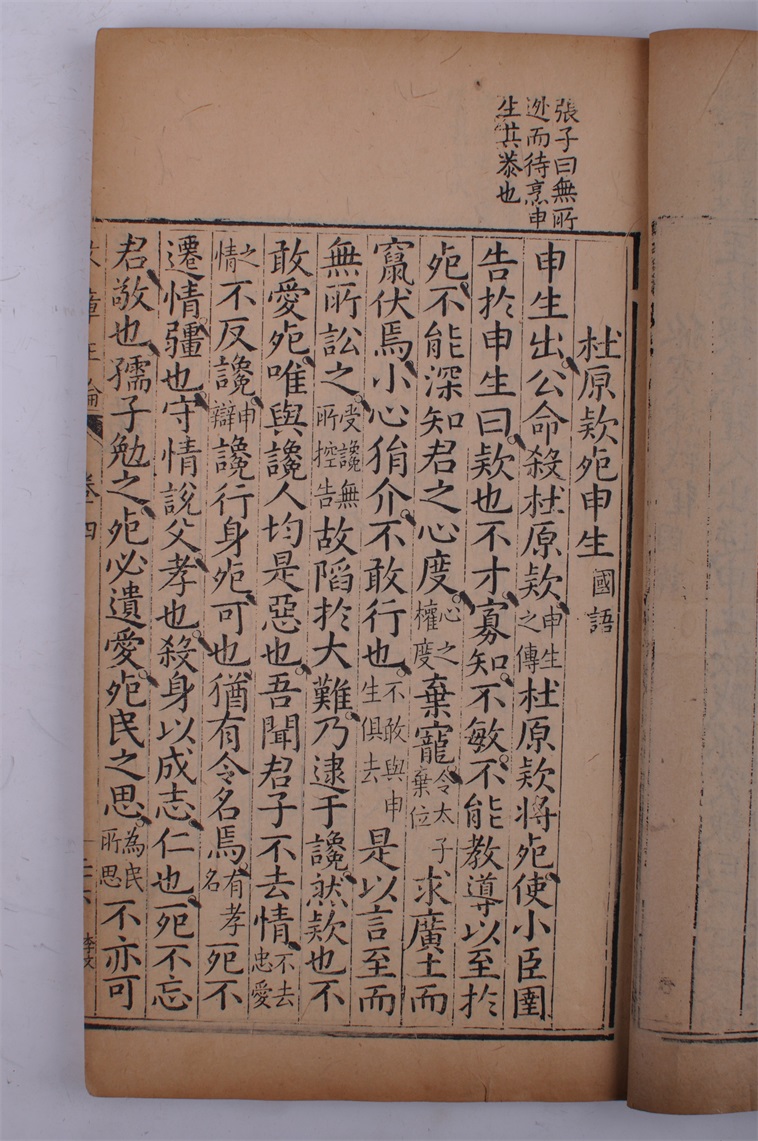 張子曰無所
逃而待烹申
生其恭也
杜原款死申生國語
申生出公命殺杜原款申生之傳杜原款將死使小臣圉
告於申生曰款也不才寡知不敏不能教導以至於
死不能深知君之心度心之權度棄寵令太子棄位求廣土而
竄伏焉小心狷介不敢行也不敢與申生俱去是以言至而
無所訟之受讒無所控告故陷於大難乃逮于讒然款也不
敢愛死唯與讒人均是惡也吾聞君子不去情不去忠愛
之情不反讒申辯讒行身死可也猶有令名焉有孝名死不
遷情彊也守情說父孝也殺身以成志仁也死不忘
君敬也孺子勉之死必遺愛死民之思為民所思不亦可
文章正論 卷十四